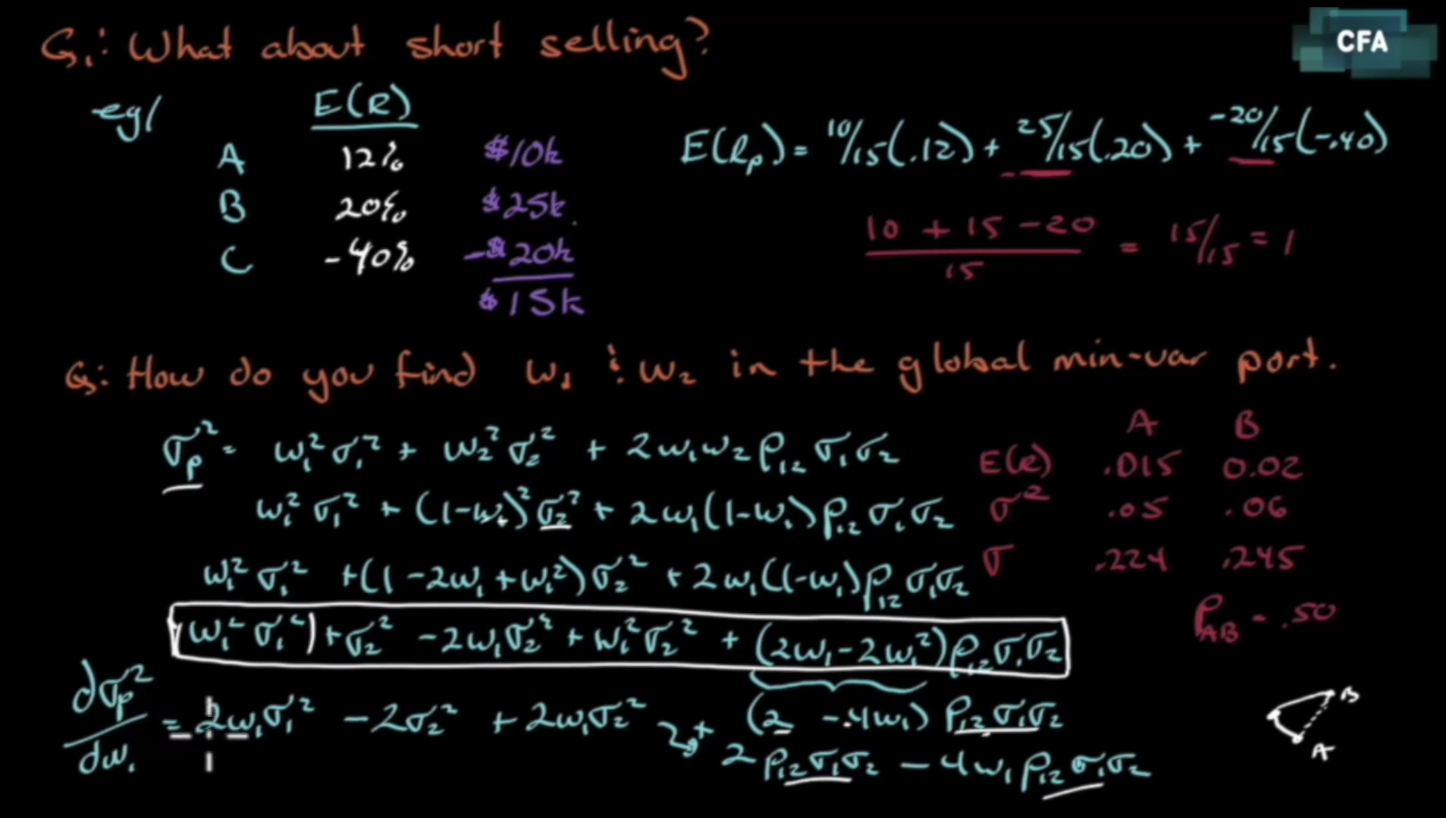 Q₁: What about short selling?
CFA
eg/ E(R)
A 12% $10k
B 20% $25k
C -40% -$20k
$15k
E(Rp) = 10/15(.12) + 25/15(.20) + -20/15(-.40)
10 + 15 - 20 / 15 = 15/15 = 1
Q: How do you find w₁ & w₂ in the global min-var port.
σp² = w₁²σ₁² + w₂²σ₂² + 2w₁w₂ρ₁₂σ₁σ₂
w₁²σ₁² + (1-w₁)²σ₂² + 2w₁(1-w₁)ρ₁₂σ₁σ₂
w₁²σ₁² + (1-2w₁+w₁²)σ₂² + 2w₁(1-w₁)ρ₁₂σ₁σ₂
(w₁²σ₁²) + σ₂² - 2w₁σ₂² + w₁²σ₂² + (2w₁-2w₁²)ρ₁₂σ₁σ₂
dσp²/dw₁ = 2w₁σ₁² - 2σ₂² + 2w₁σ₂² + (2 - 4w₁)ρ₁₂σ₁σ₂
2ρ₁₂σ₁σ₂ - 4w₁ρ₁₂σ₁σ₂
A B
E(R) .015 0.02
σ² .05 .06
σ .224 .245
ρAB = .50
B
A